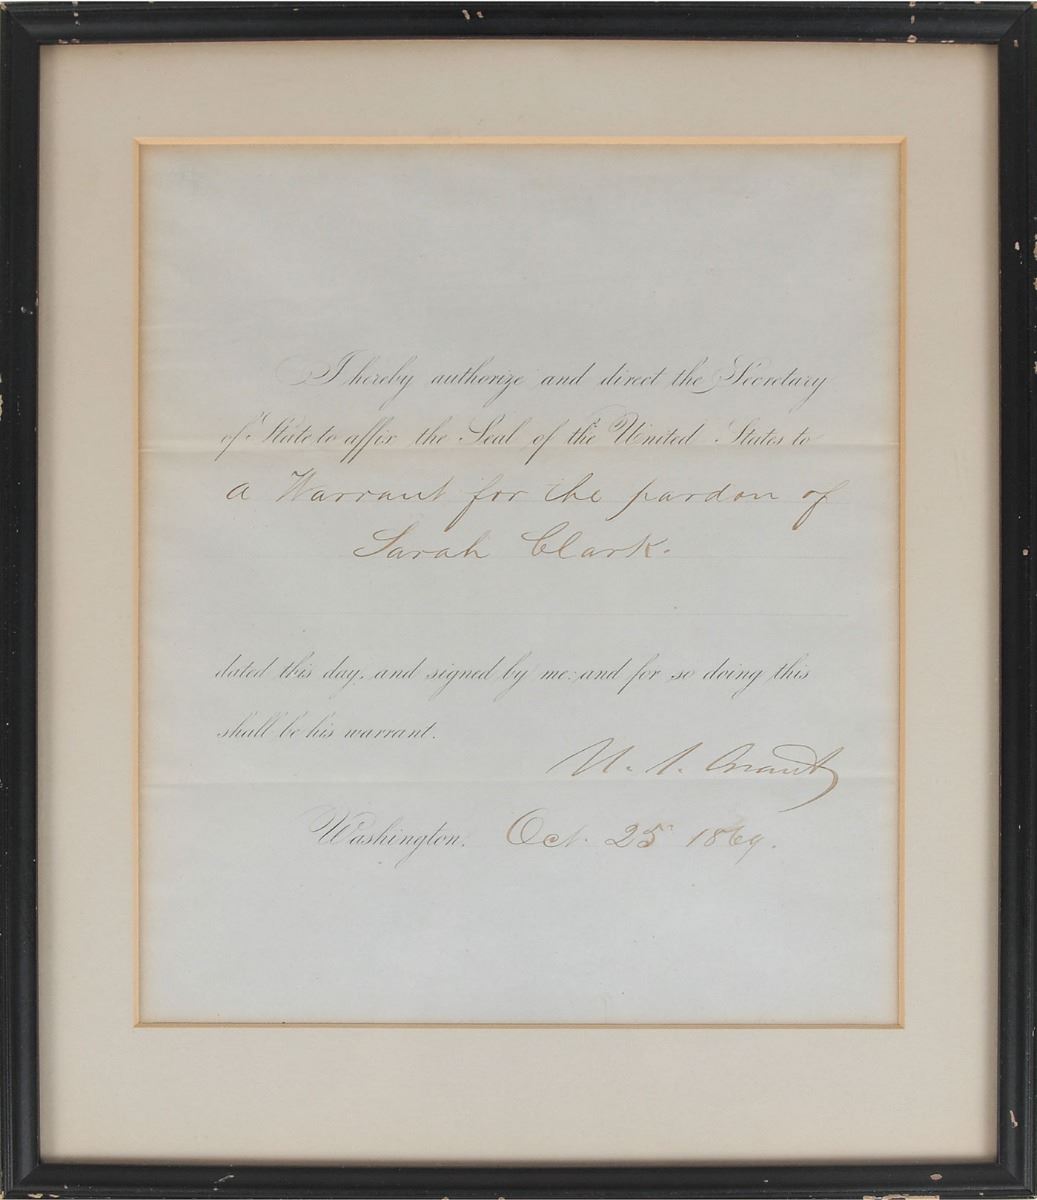 I hereby authorize and direct the Secretary
of State to affix the Seal of the United States to
a Warrant for the pardon of
Sarah Clark.
dated this day, and signed by me: and for so doing this
shall be his warrant.
U. S. Grant
Washington, Oct. 25 1869.